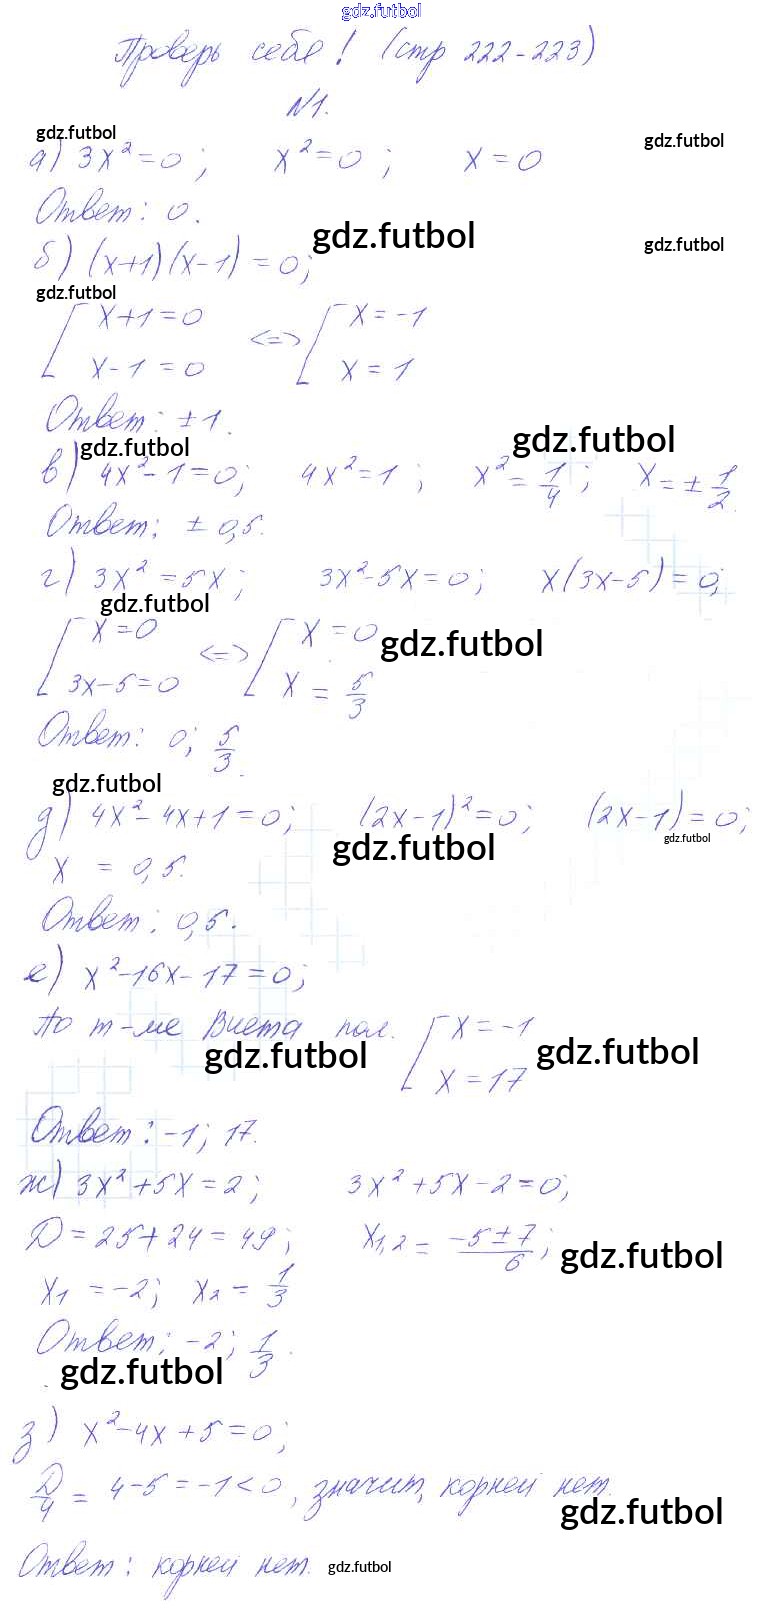 gdz.futbol
Проверь себя! (стр 222-223)
№1.
gdz.futbol
gdz.futbol
а) 3x²=0; x²=0; x=0
Ответ: 0.
gdz.futbol
gdz.futbol
б) (x+1)(x-1)=0;
gdz.futbol
[ x+1=0 <=> [ x=-1
x-1=0 x=1
Ответ: ±1.
gdz.futbol
gdz.futbol
в) 4x²-1=0; 4x²=1; x²=1/4; x=±1/2.
Ответ: ±0,5.
г) 3x²=5x; 3x²-5x=0; x(3x-5)=0;
gdz.futbol
[ x=0 <=> [ x=0
gdz.futbol
3x-5=0 x=5/3
Ответ: 0; 5/3.
gdz.futbol
д) 4x²-4x+1=0; (2x-1)²=0; (2x-1)=0;
gdz.futbol
gdz.futbol
x = 0,5.
Ответ: 0,5.
е) x²-16x-17=0;
По т-ме Виета пол. [ x=-1
gdz.futbol
gdz.futbol
x=17
Ответ: -1; 17.
ж) 3x²+5x=2; 3x²+5x-2=0;
D=25+24=49; x1,2 = (-5±7)/6;
gdz.futbol
x1 = -2; x2 = 1/3
Ответ: -2; 1/3.
gdz.futbol
з) x²-4x+5=0;
D/4 = 4-5=-1<0, значит, корней нет.
gdz.futbol
Ответ: корней нет.
gdz.futbol